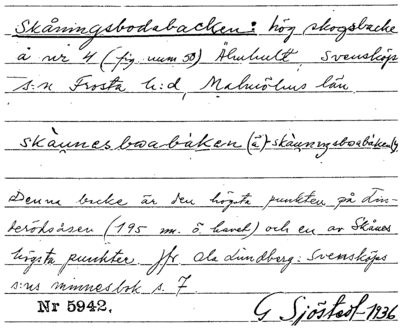 Skåningsbodabacken: hög skogsbacke
å nr 4 (fig. num 50) Älmhult, Svensköps
s:n Frosta h:d, Malmöhus län.
Denna backe är den högsta punkten på Lin-
derödsåsen (195 m. ö. havet) och en av Skånes
högsta punkter. Jfr Ola Lundberg: Svensköps
s:ns minnesbok s. 7.
Nr 5942.
G Sjöstedt 1936